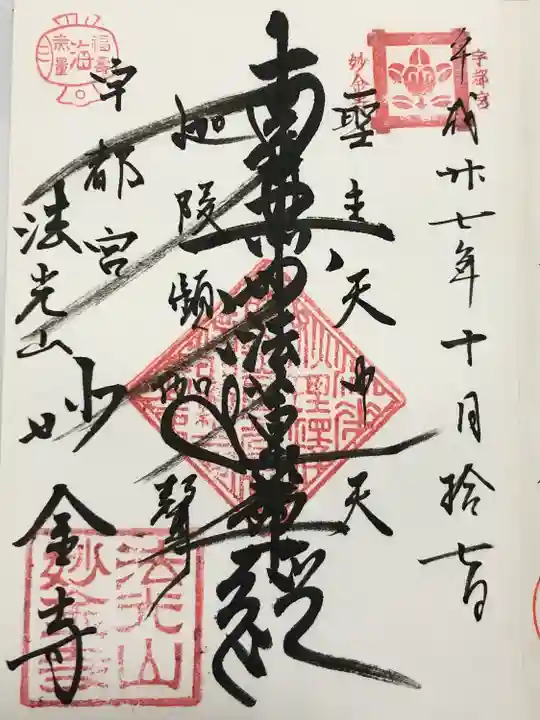 平成廿七年十月拾七日
聖主天中天
南無妙法蓮華経
迦陵頻伽聲
宇都宮
法光山 妙金寺
宇都宮
妙金寺
福寿
海
無量
法光山
妙金寺